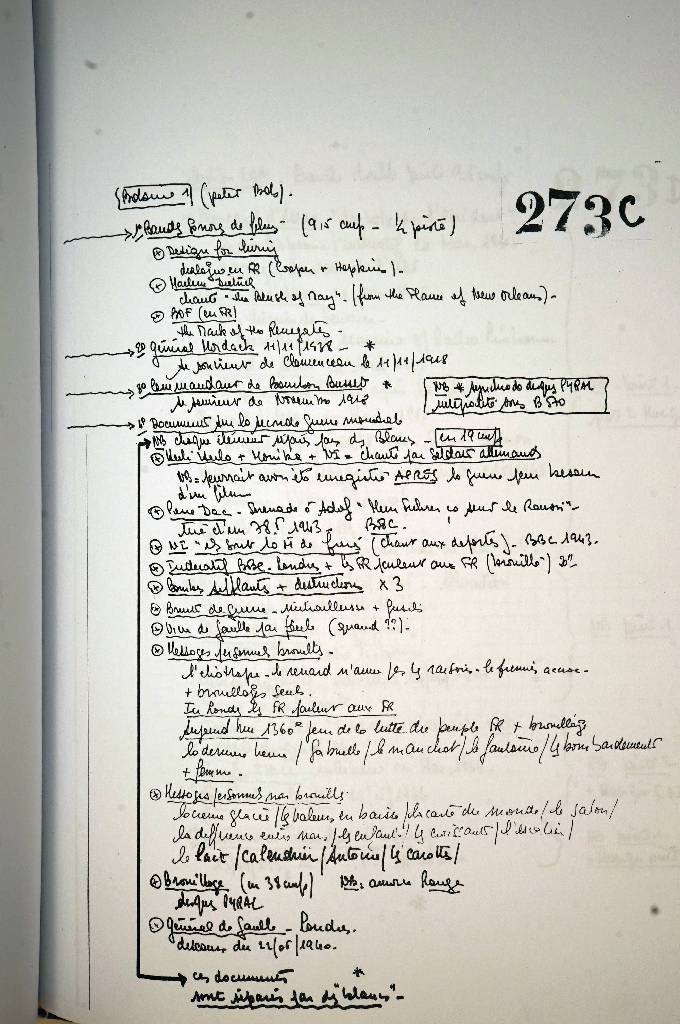 273C
(peter Bob).
1º Bandes Sonores de films - (9,5 cmp - ½ piste)
* Design for living
dialogue en FR (Cooper + Hopkins) -
* Marlene Dietrich
chante "the Blush of May". (from the Flame of New Orleans) -
* BOF (en FR)
the Mark of the Renegate -
2º général Mordack 11/11/1938 *
se souvient de Clemenceau le 11/11/1918
3º Commandant de Bourbon Busset *
se souvient de Novembre 1918
NB * synchro do disques PYRAL
interpolite sous B 570
Document sur la seconde guerre mondiale
NB chaque élément séparé par des Blancs - en 19 cmp
* + Monika + NI = chants par Soldats allemands
NB = pourrait avoir été enregistré APRÈS la guerre pour besoin
d'un film
* Pierre Dac - Serenade à Adolf
Tiré d'un 78.T 1943 - BBC.
* NI (chant aux deportés) - BBC 1943.
* Indicatif BBC - Londres + les FR parlent aux FR (brouillé)
* Bombes sifflantes + destructions x 3
* Bruit de guerre - mitrailleuse + fusils
* Vive de Gaulle par foule (quand ??) -
* Messages personnels brouillés -
le renard n'aime pas les raisins -
+ brouillages seuls.
Ici Londres les FR parlent aux FR
Aujourd'hui 1360e jour de la lutte du peuple FR + brouillage
la dernière heure / Gabrielle / le manchot / le fantôme / les bombardements
+ femme.
* Messages personnels non brouillés
la creme glacée / les valeurs en baisse / la carte du monde / le salon /
la différence entre nous / les enfants / les croissants / l'escalier /
le lait / calendrier / Antoine / les carottes /
* Brouillage (en 38 cmp) NB: amorce Rouge
disques PYRAL
* général de Gaulle - Londres.
discours du 22/06/1940.
ces documents *
sont séparés par des "blancs" -